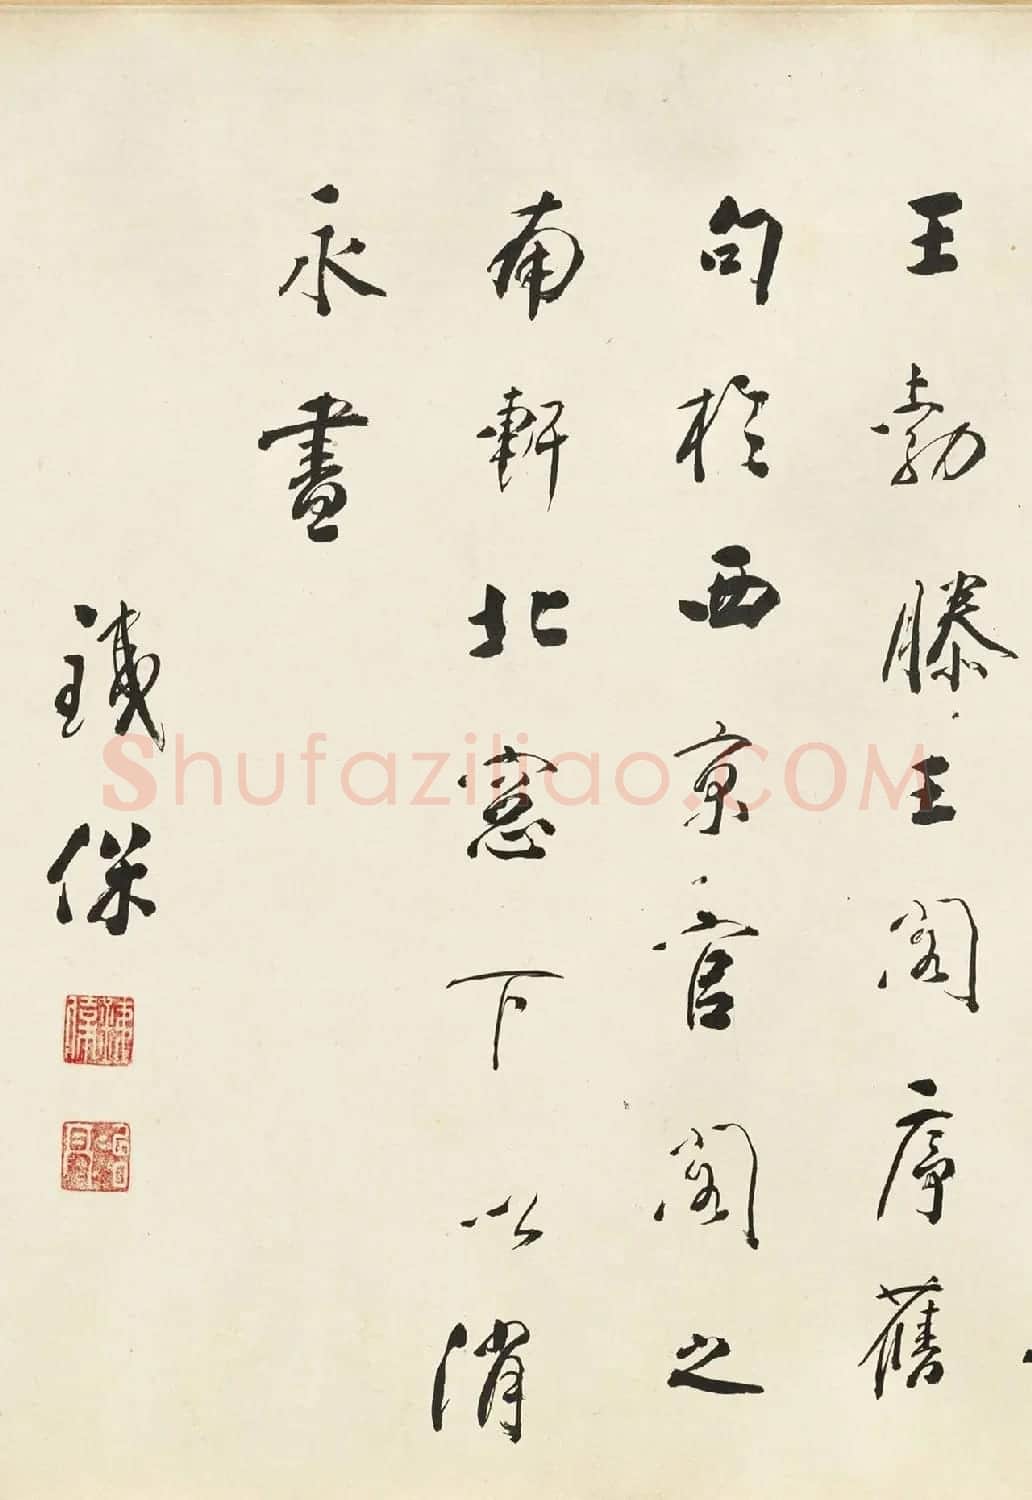 王勃滕王阁序舊
句於西京官阁之
南軒北窓下以消
永晝
鐵保
Shufaziliao.COM